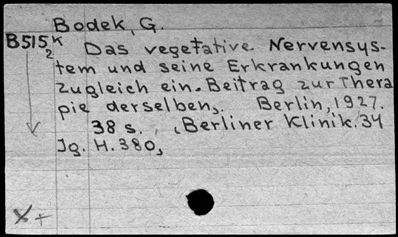 Bodek, G.
B515₂ᴷ Das vegetative Nervensys-
tem und seine Erkrankungen
zugleich ein Beitrag zur Thera
pie derselben. Berlin, 1927.
38 s. , Berliner Klinik. 34
Jg. H. 380,
X +